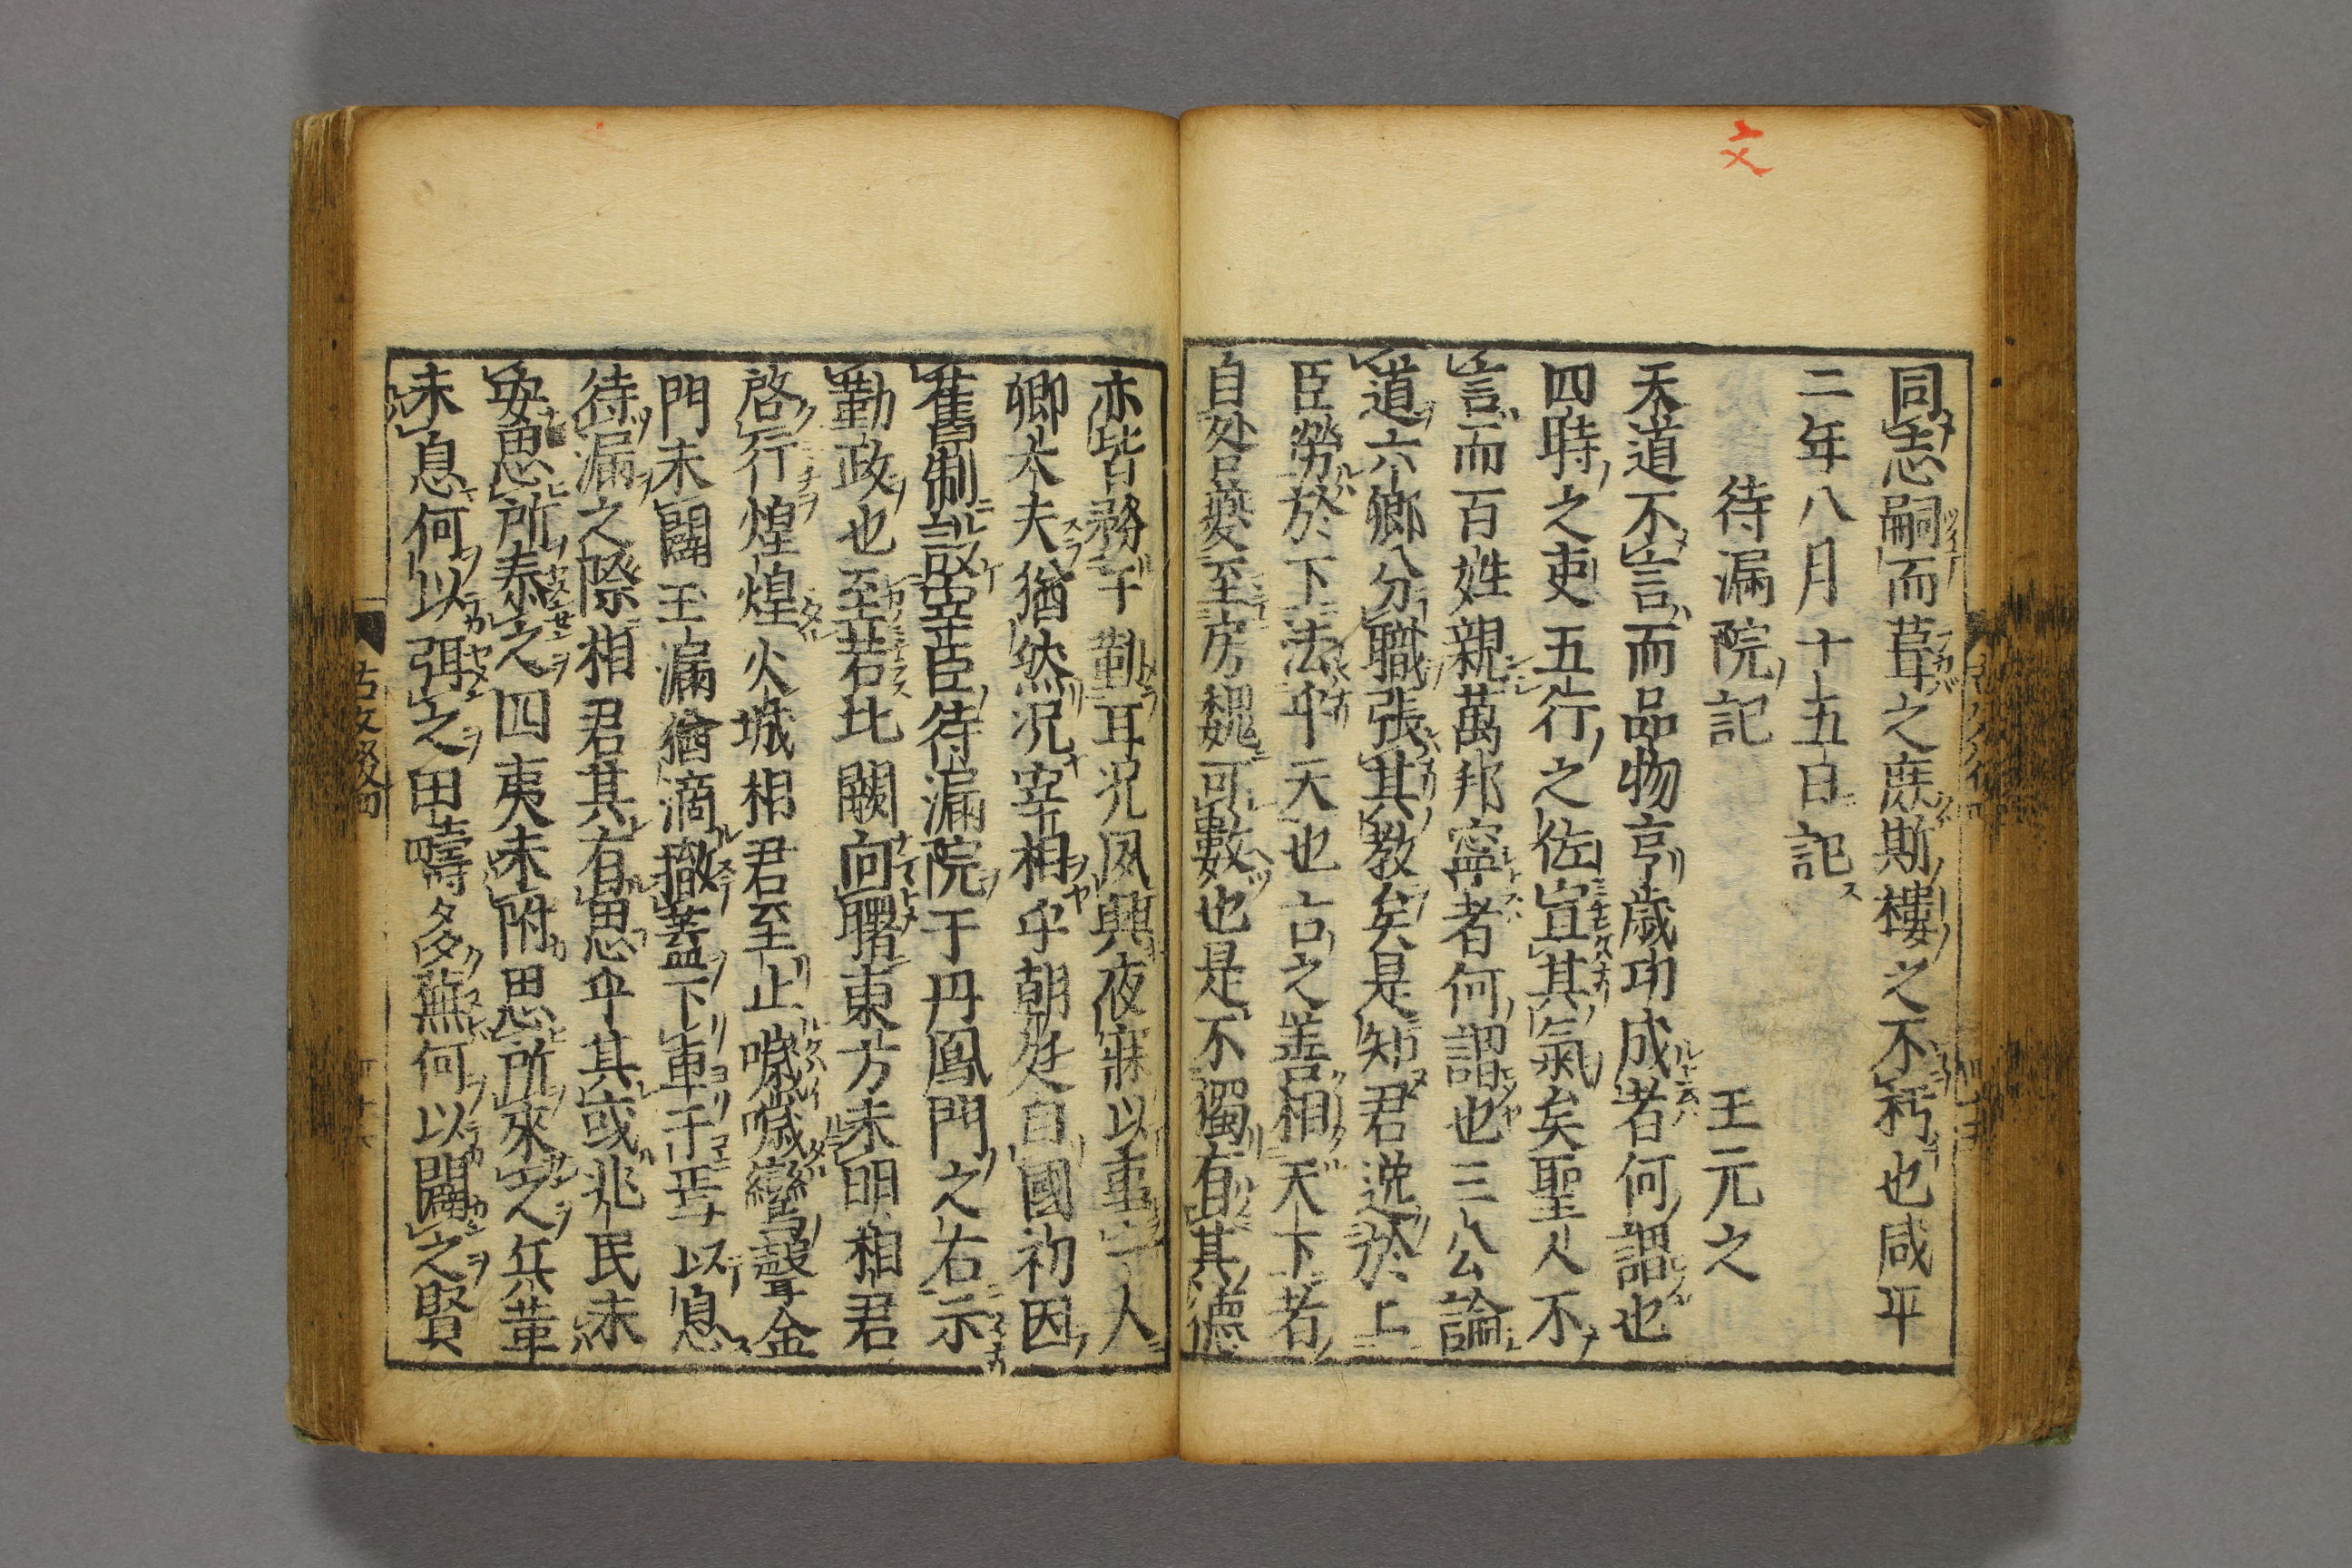 文
同志嗣而葺之庶斯樓之不朽也咸平
二年八月十五日記
待漏院記 王元之
天道不言而品物亨歲功成者何謂也
四時之吏五行之佐宣其氣矣聖人不
言而百姓親萬邦寧者何謂也三公論
道六卿分職張其教矣是知君逸於上
臣勞於下法乎天也古之善相天下者
自咎夔至房魏可數也是不獨有其德
亦皆務于勤耳況夙興夜寐以事一人
卿大夫猶然況宰相乎朝廷自國初因
舊制設宰臣待漏院于丹鳳門之右示
勤政也至若北闕向曙東方未明相君
啓行煌煌火城相君至止噦噦鸞聲金
門未闢玉漏猶滴撤蓋下車于焉以息
待漏之際相君其有思乎其或兆民未
安思所泰之四夷未附思所來之兵革
未息何以弭之田疇多蕪何以闢之賢